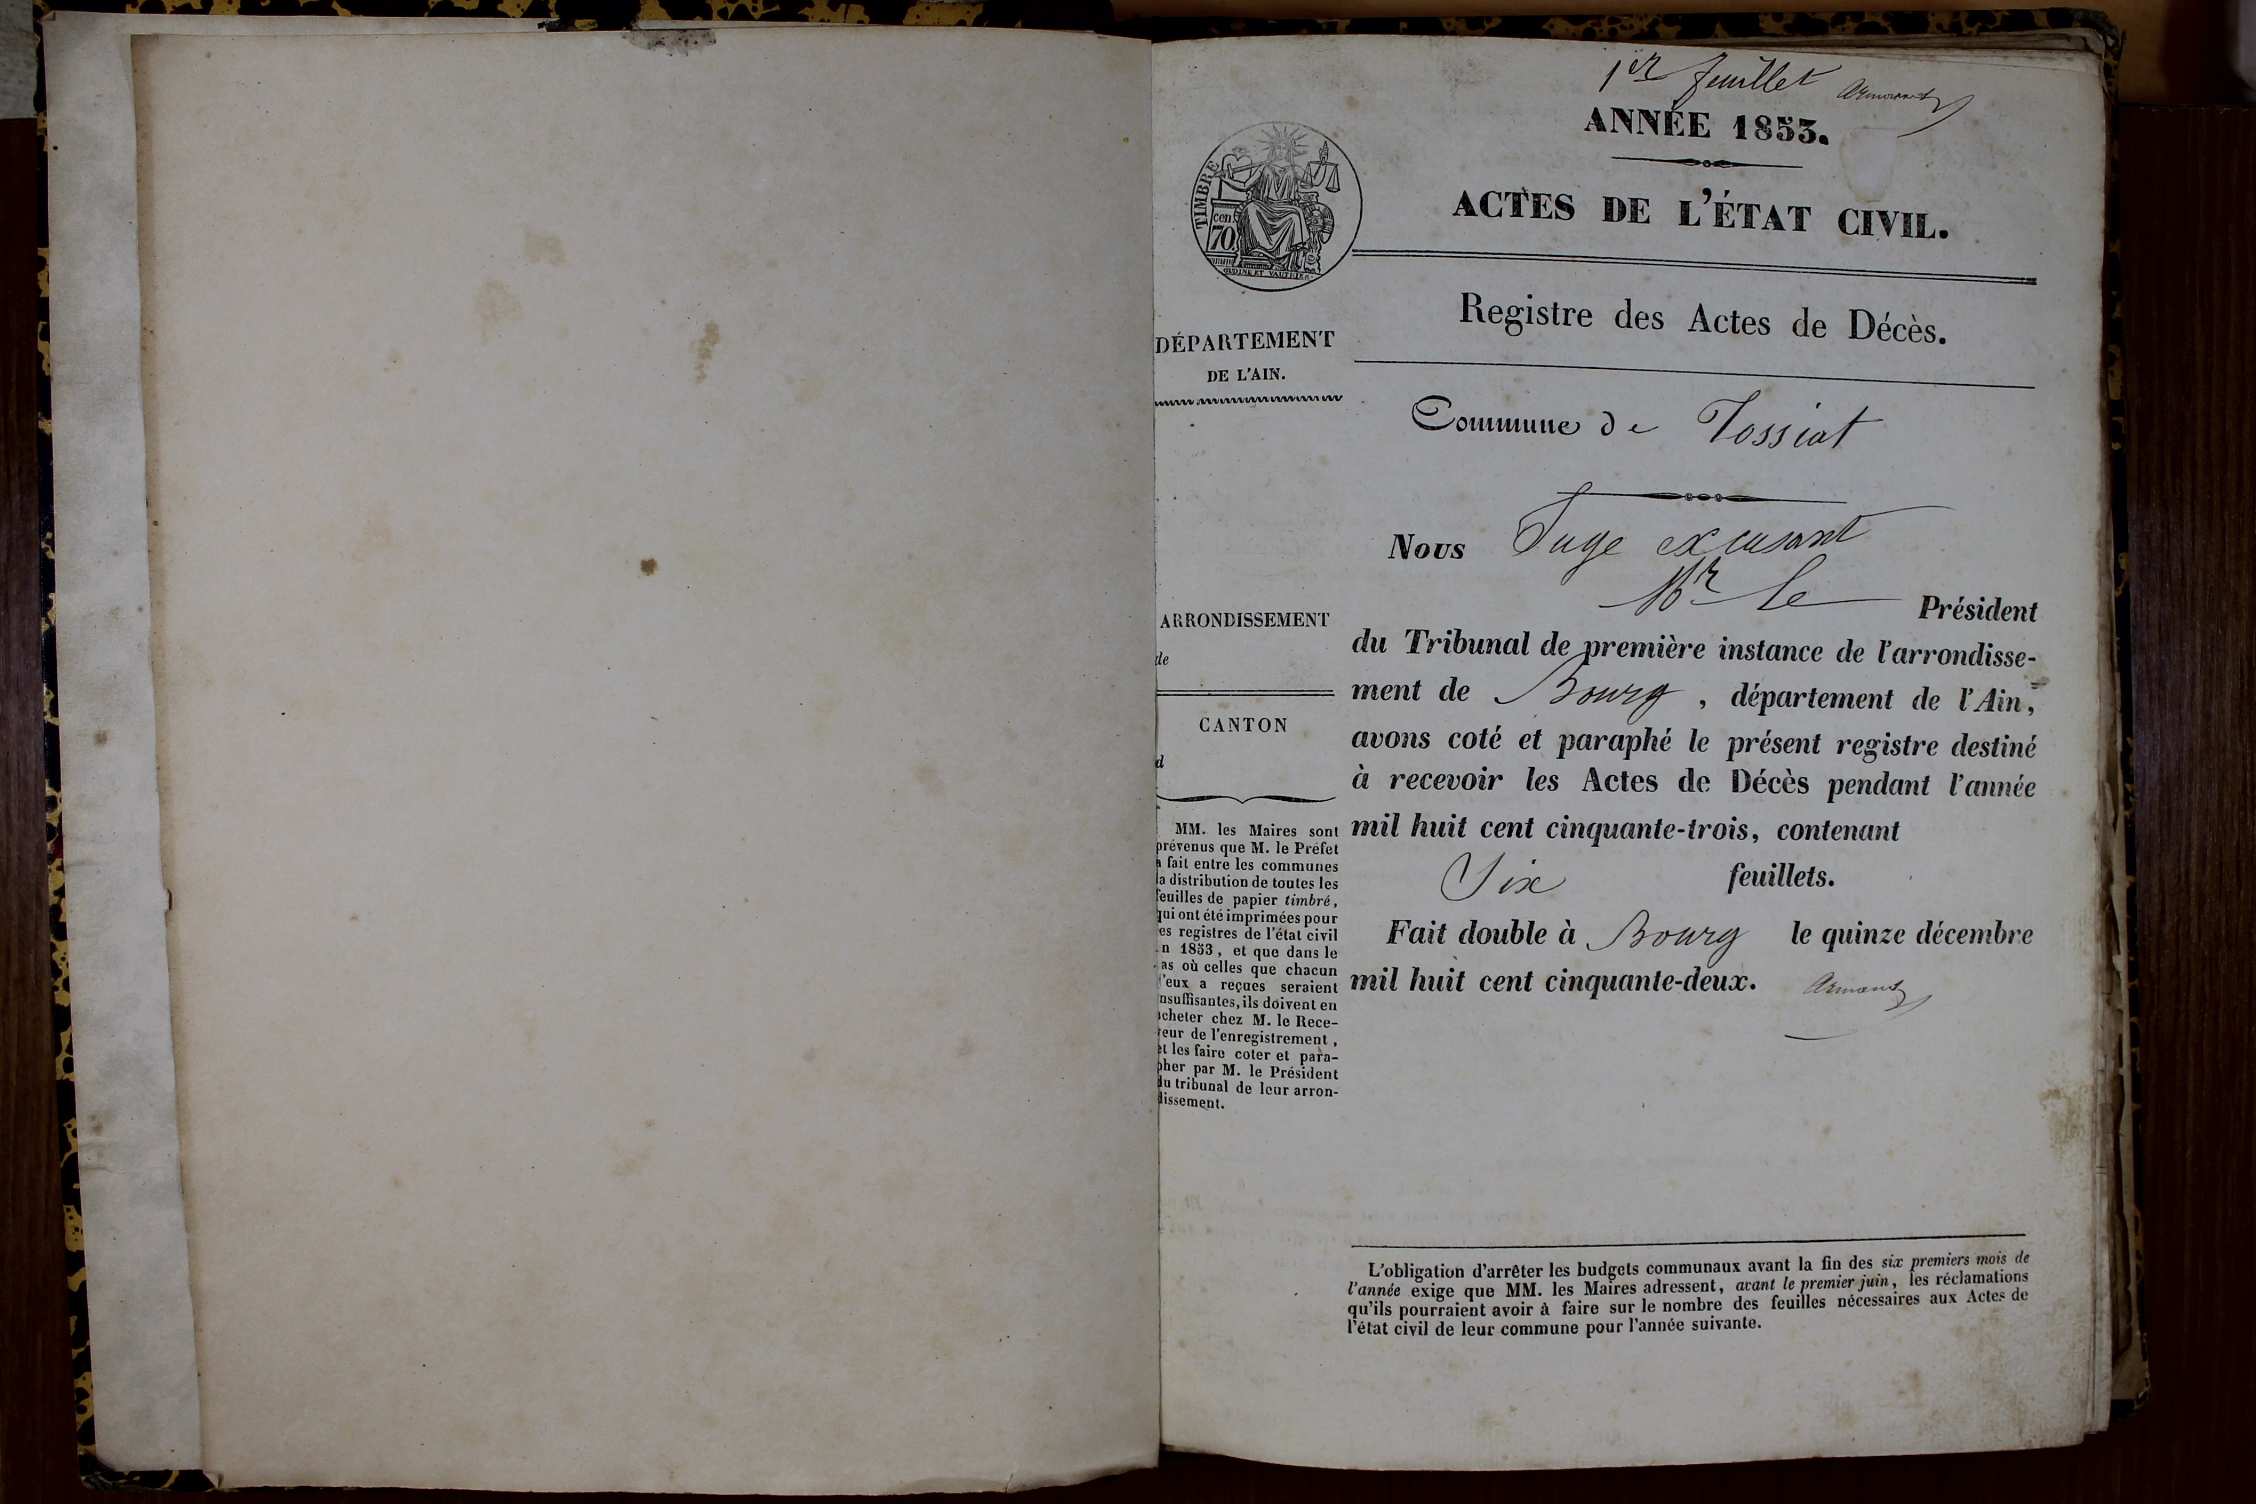 1er feuillet
ANNÉE 1853.
ACTES DE L'ÉTAT CIVIL.
TIMBRE
cen
70
Registre des Actes de Décès.
DÉPARTEMENT
DE L'AIN.
Commune de Tossiat
Nous Juge excusant
Mr le Président
du Tribunal de première instance de l'arrondisse-
ment de Bourg, département de l'Ain,
avons coté et paraphé le présent registre destiné
à recevoir les Actes de Décès pendant l'année
mil huit cent cinquante-trois, contenant
Six feuillets.
Fait double à Bourg le quinze décembre
mil huit cent cinquante-deux.
ARRONDISSEMENT
de
CANTON
d
MM. les Maires sont
prévenus que M. le Préfet
a fait entre les communes
la distribution de toutes les
feuilles de papier timbré,
qui ont été imprimées pour
es registres de l'état civil
n 1853, et que dans le
as où celles que chacun
d'eux a reçues seraient
nsuffisantes, ils doivent en
acheter chez M. le Rece-
veur de l'enregistrement,
et les faire coter et para-
pher par M. le Président
du tribunal de leur arron-
dissement.
L'obligation d'arrêter les budgets communaux avant la fin des six premiers mois de
l'année exige que MM. les Maires adressent, avant le premier juin, les réclamations
qu'ils pourraient avoir à faire sur le nombre des feuilles nécessaires aux Actes de
l'état civil de leur commune pour l'année suivante.